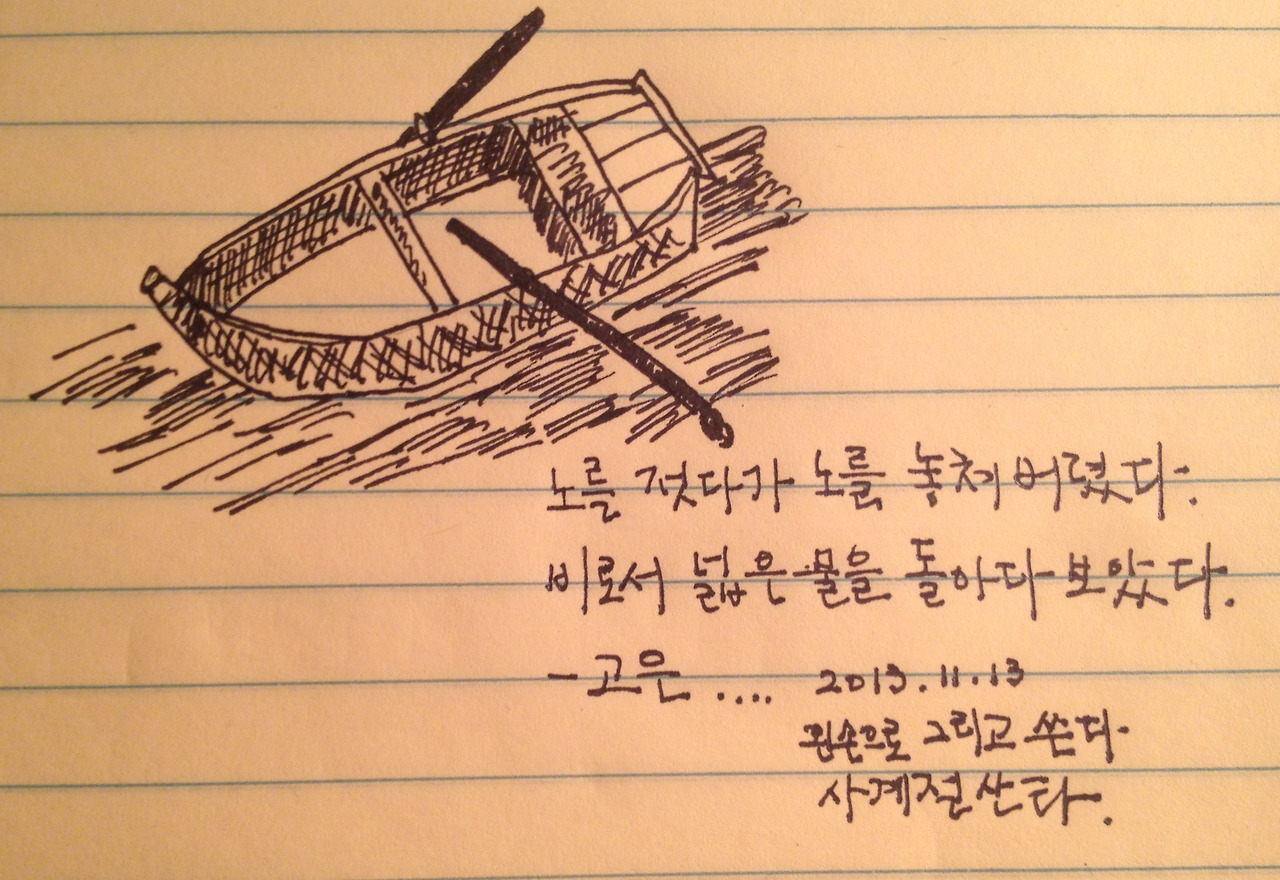 노를 젓다가 노를 놓쳐 버렸다.
비로서 넓은 물을 돌아다 보았다.
- 고은 .... 2013.11.13
왼손으로 그리고 쓴다.
사계절 산타.